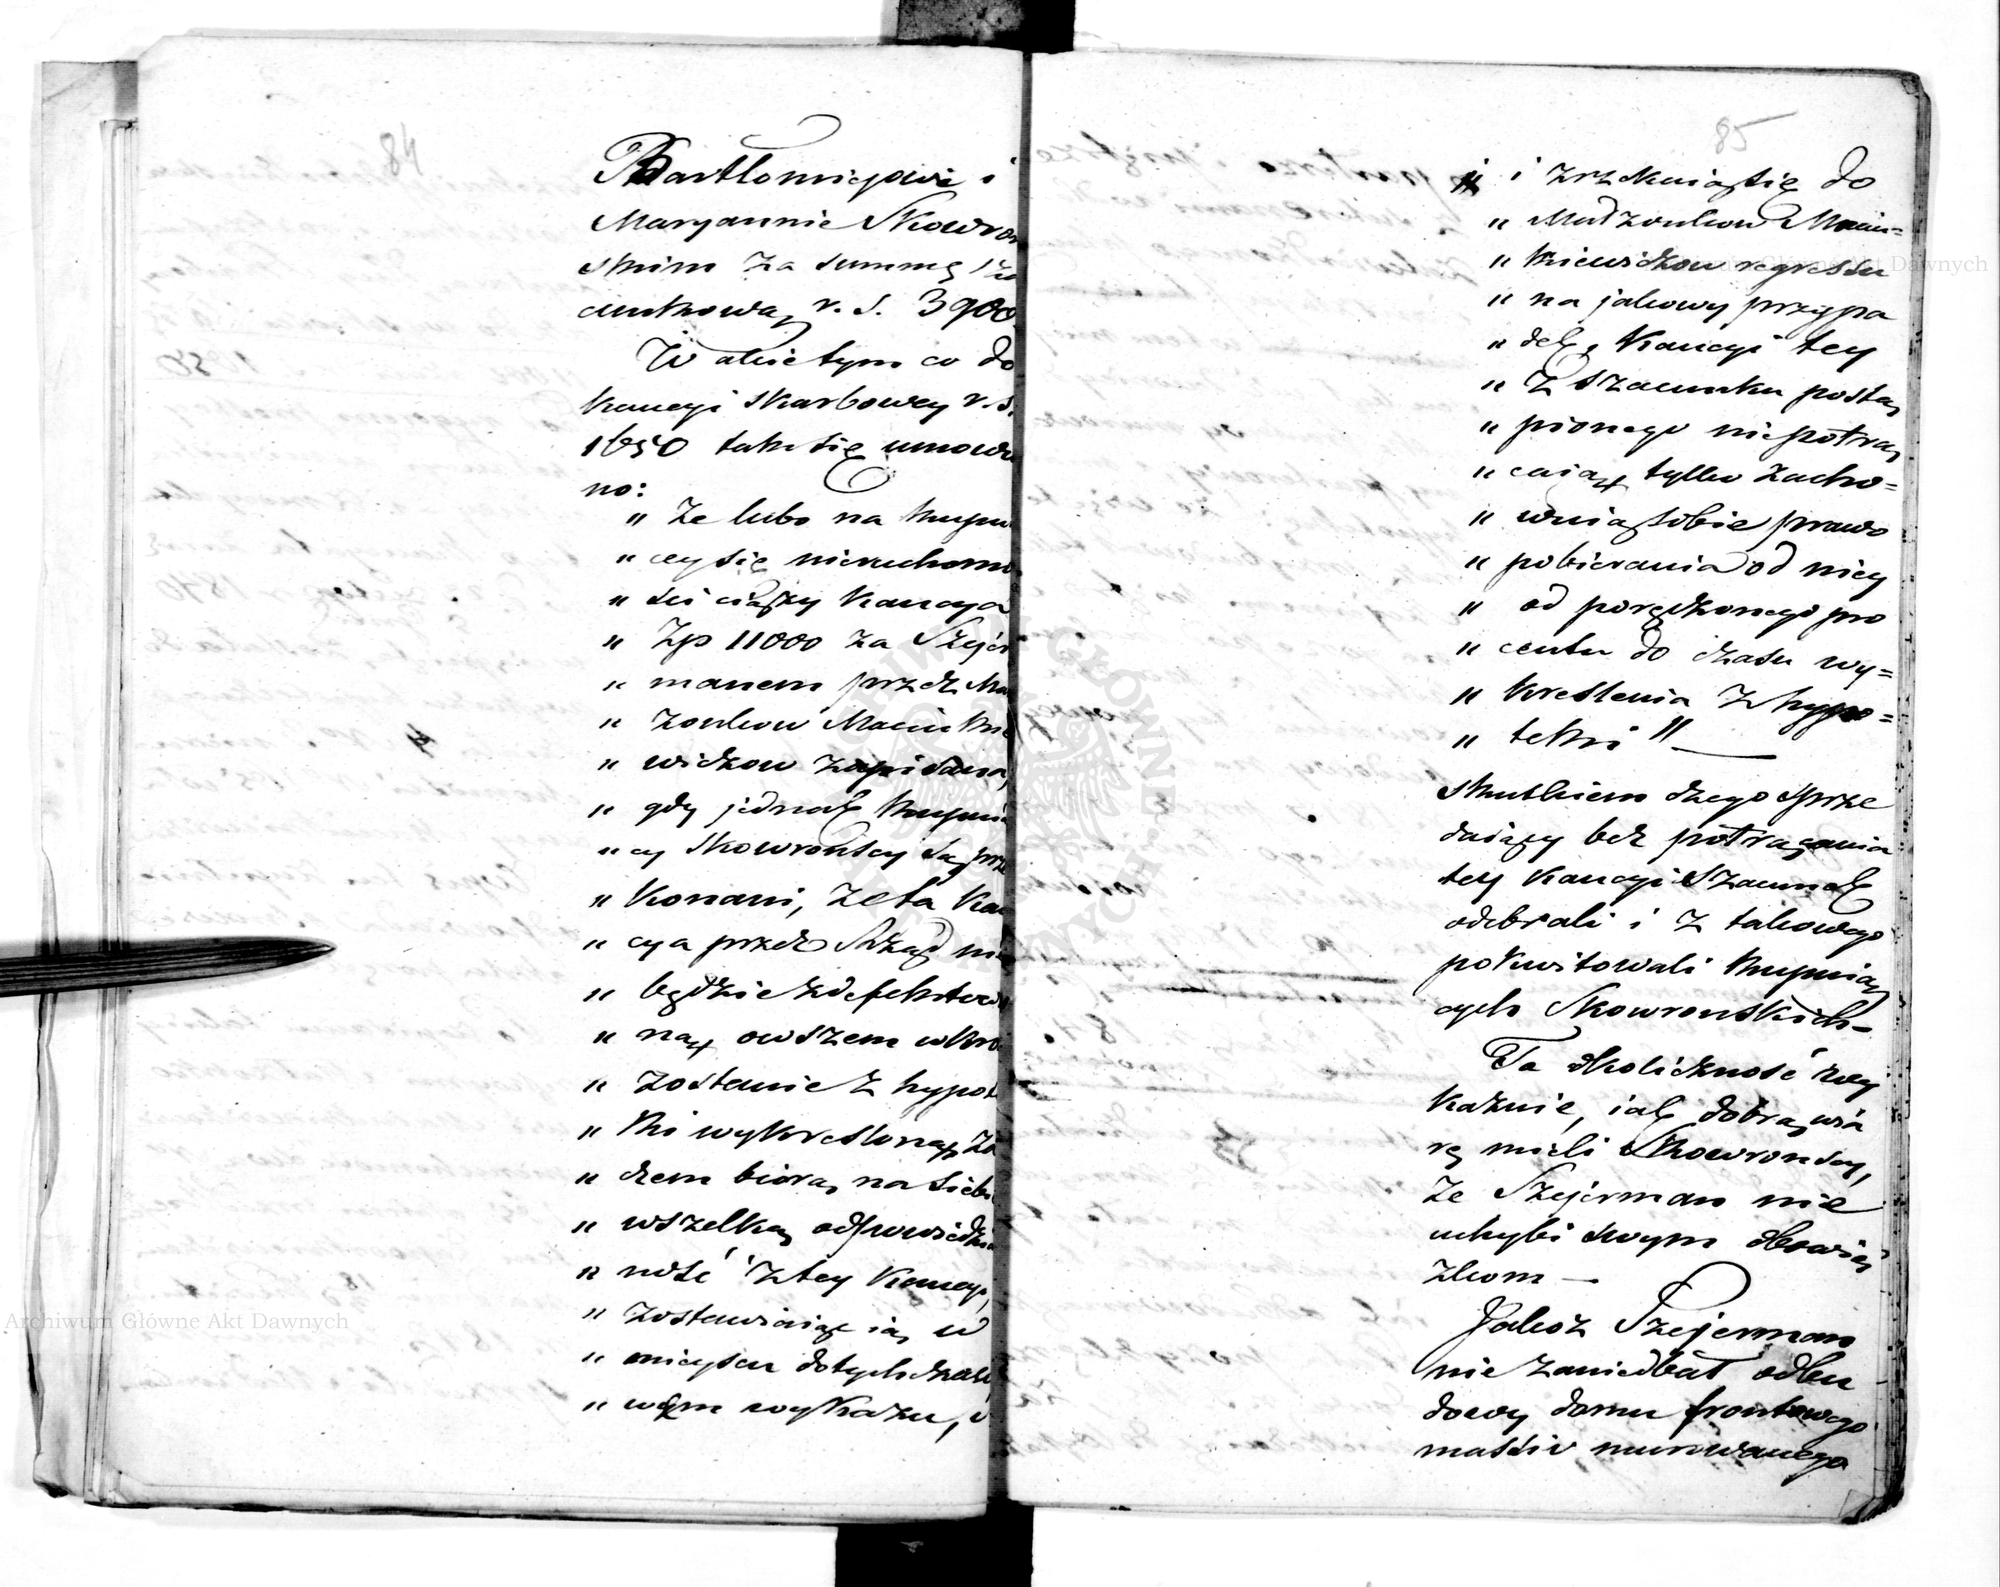 84
Bartłomiejowi i
Maryannie Skowron
skim za summę sza
cunkową r. s. 3900
W akcie tym co do
kaucyi skarbowey r. s.
1650 tak się umowio
no:
" Ze lubo na kupui
" cey się nieruchomo
" ści ciąży kaucya
" Zp 11000 za Szejer
" manem przez Mał
" żonkow Macinkie
" wiczow zapisana,
" gdy jednak kupuią
" cy Skowronscy są prze
" konani, że ta kau
" cya przez Rząd nie
" będzie zdefektowa
" ną, owszem wkrotce
" zostanie z hypote
" ki wykresloną, za
" czem biorą na siebie
" wszelką odpowiedzial
" ność z tey kaucyi,
" zostawiaiąc ią w
" mieyscu dotychczaso
" wem wykazu,
85
" i zrzekaią się do
" Małżonkow Macin=
" kiewiczow regressu
" na jakowy przypa
" dek, kaucyi tey
" z szacunku postą
" pionego niepotrą
" caiąc, tylko zacho=
" wuią sobie prawo
" pobierania od niey
" od poręczonego pro
" centu do czasu wy=
" kreslenia z hypo=
" teki "
Skutkiem czego sprze
daiący bez potrącenia
tey kaucyi szacunek
odebrali i z takowego
pokwitowali kupuią
cych Skowronskich -
Ta okoliczność wy
kaznie, iak dobrą wia
rę mieli Skowronscy,
że Szejerman nie
uchybi swym obowią
zkom -
Jakoż Szejerman
nie zaniedbał odbu
dowy domu frontowego
massiv murowanego
Archiwum Główne Akt Dawnych
Archiwum Główne Akt Dawnych